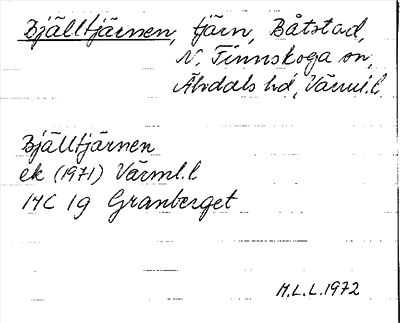 Bjälltjärnen, tjärn, Båtstad,
N. Finnskoga sn,
Älvdals hd, Värml.l.
Bjälltjärnen
ek (1971) Värml.l
14C 1g Granberget
M.L.L.1972